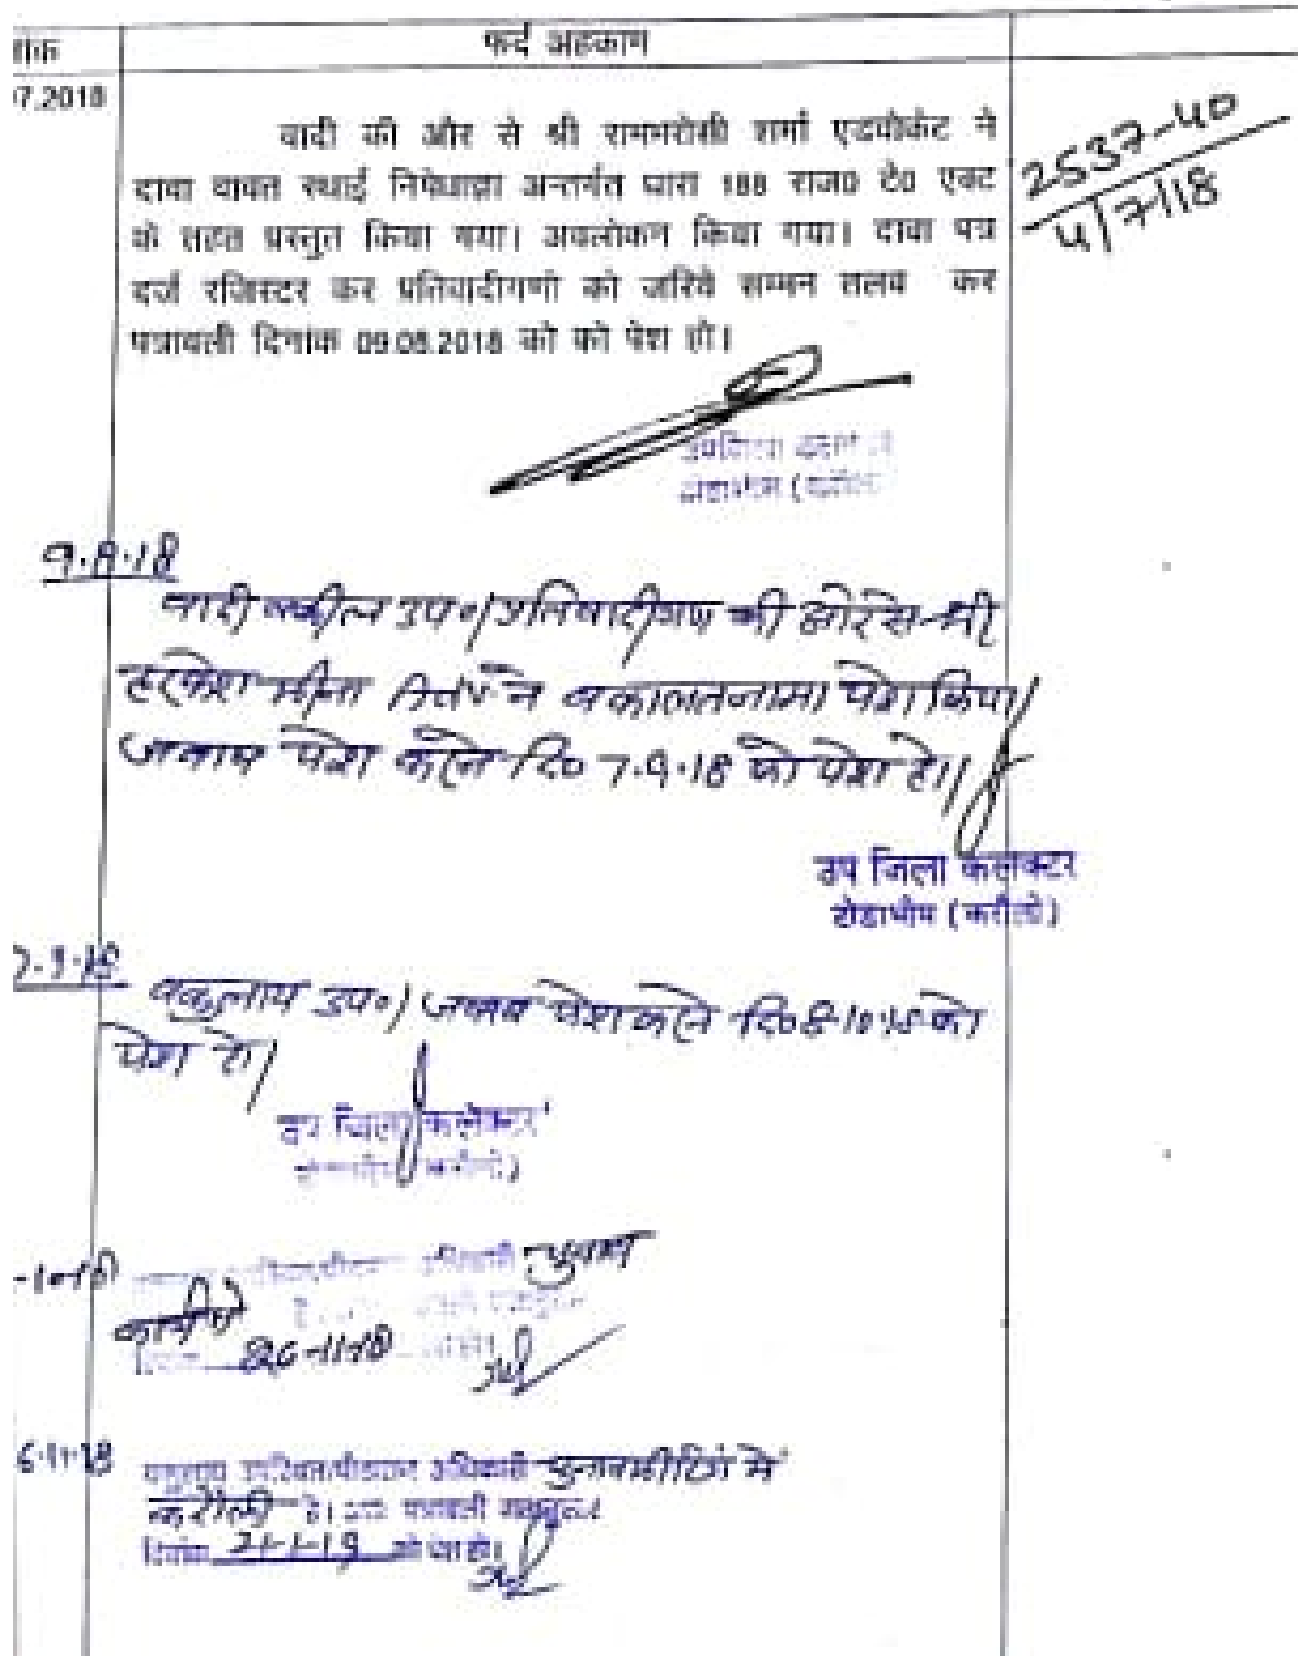 फर्द अहकाम
07.2018
वादी की और से श्री रामभरोसी शर्मा एडवोकेट ने
दावा वावत स्थाई निषेधाज्ञा अन्तर्गत धारा 188 राज0 टे0 एक्ट
के तहत प्रस्तुत किया गया। अवलोकन किया गया। दावा पत्र
दर्ज रजिस्टर कर प्रतिवादीगणों को जरिये सम्मन तलब कर
पत्रावली दिनांक 09.08.2018 को को पेश हो।
2537-40
4/7/18
9.8.18
वादी वकील उप०/प्रतिवादीगण की ओर से श्री
हरकेश मीना ने वकालतनामा पेश किया।
जवाब पेश करने दि० 7.9.18 को पेश हो।
उप जिला कलक्टर
टोडाभीम (करौली)
7.9.18
वकुलाय उप०/ जवाब पेश करने दि० 8.10.18 को
पेश हो।
उप जिला कलेक्टर
चुनाव
26-11-18
6.11.18
अधिकारी चुनाव मीटिंग में
करौली है। पत्रावली
दिनांक 21-1-19 को पेश हो।